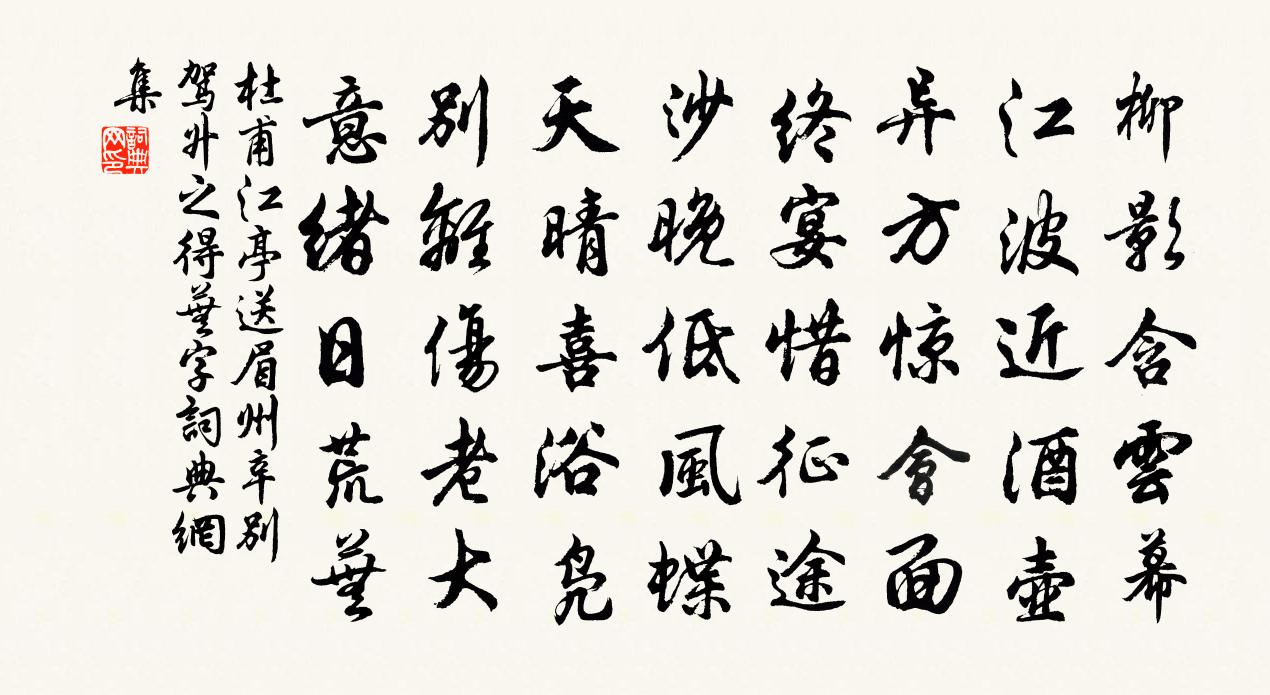 柳影含雲幕
江波近酒壺
异方惊會面
終宴惜征途
沙晚低風蝶
天晴喜浴鳧
別離傷老大
意緒日荒蕪
杜甫江亭送眉州辛別
駕升之得蕪字詞典網
集
詞典网印